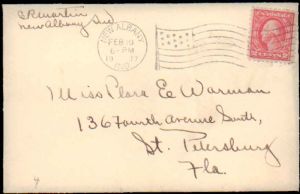 SR Martin
New Albany Ind
NEW ALBANY
FEB 19
6-PM
19 17
IND.
Miss Flora E Warman
136 Fourth Avenue South,
St. Petersburg
Fla.